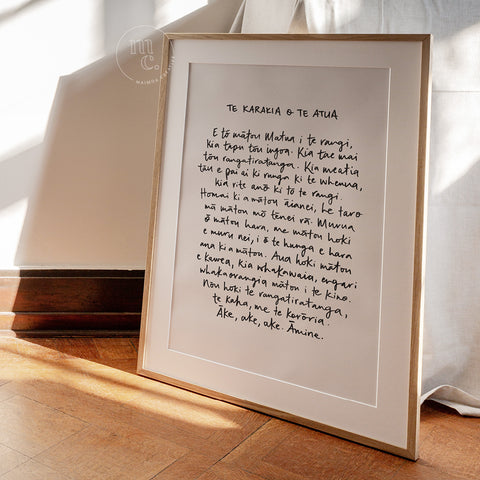 mc.
TE KARAKIA O TE ATUA
E tō mātou Matua i te rangi,
kia tapu tōu ingoa. Kia tae mai
tōu rangatiratanga. Kia meatia
tāu e pai ai ki runga ki te whenua,
kia rite anō ki tō te rangi.
Homai ki a mātou āianei, he taro
mā mātou mō tēnei rā. Murua
ō mātou hara, me mātou hoki
e muru nei, i ō te hunga e hara
ana ki a mātou. Aua hoki mātou
e kawea, kia whakawaia, engari
whakaorangia mātou i te kino.
Nōu hoki te rangatiratanga,
te kaha, me te korōria.
Āke, ake, ake. Āmine.